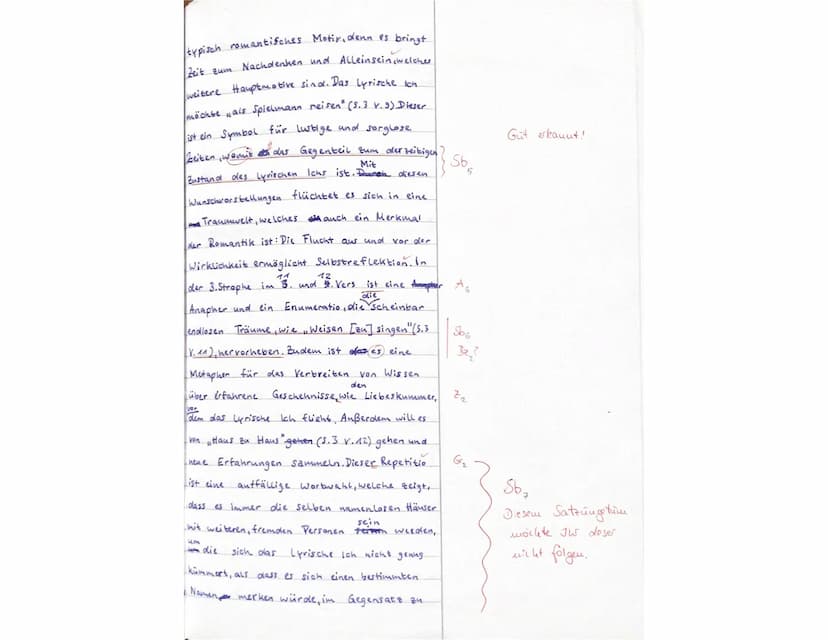 typisch romantisches Motiv, denn es bringt
Zeit zum Nachdenken und Alleinsein, welches
weitere Hauptmotive sind. Das Lyrische Ich
möchte „als Spielmann reisen" (S.3 V.9) Dieser
ist ein Symbol für lustige und sorglose
Gut erkannt!
Zeiten, womit das Gegenteil zum derzeitigen
Sb5
Zustand des Lyrischen Ichs ist. Mit diesen
Wunschvorstellungen flüchtet es sich in eine
Traumwelt, welches auch ein Merkmal
der Romantik ist: Die Flucht aus und vor der
Wirklichkeit ermöglicht Selbstreflektion. In
der 3. Strophe im 11. und 12. Vers ist eine
A6
Anapher und ein Enumeratio, die die scheinbar
endlosen Träume, wie „Weisen [zu] singen" (S.3
Sb6
V.11), hervorheben. Zudem ist es eine
Bz2?
Metapher für das Verbreiten von Wissen
über erfahrene Geschehnisse, wie den Liebeskummer,
Z2
vor dem das Lyrische Ich flieht. Außerdem will es
von „Haus zu Haus" (S.3 V.12) gehen und
neue Erfahrungen sammeln. Dieser Repetitio
G2
ist eine auffällige Wortwahl, welche zeigt,
Sb7
dass es immer die selben namenlosen Häuser
Diesem Satzungetüm
mit weiteren, fremden Personen sein werden,
möchte
leser
um die sich das Lyrische Ich nicht genug
nicht folgen.
kümmert, als dass es sich einen bestimmten
Namen merken würde, im Gegensatz zu